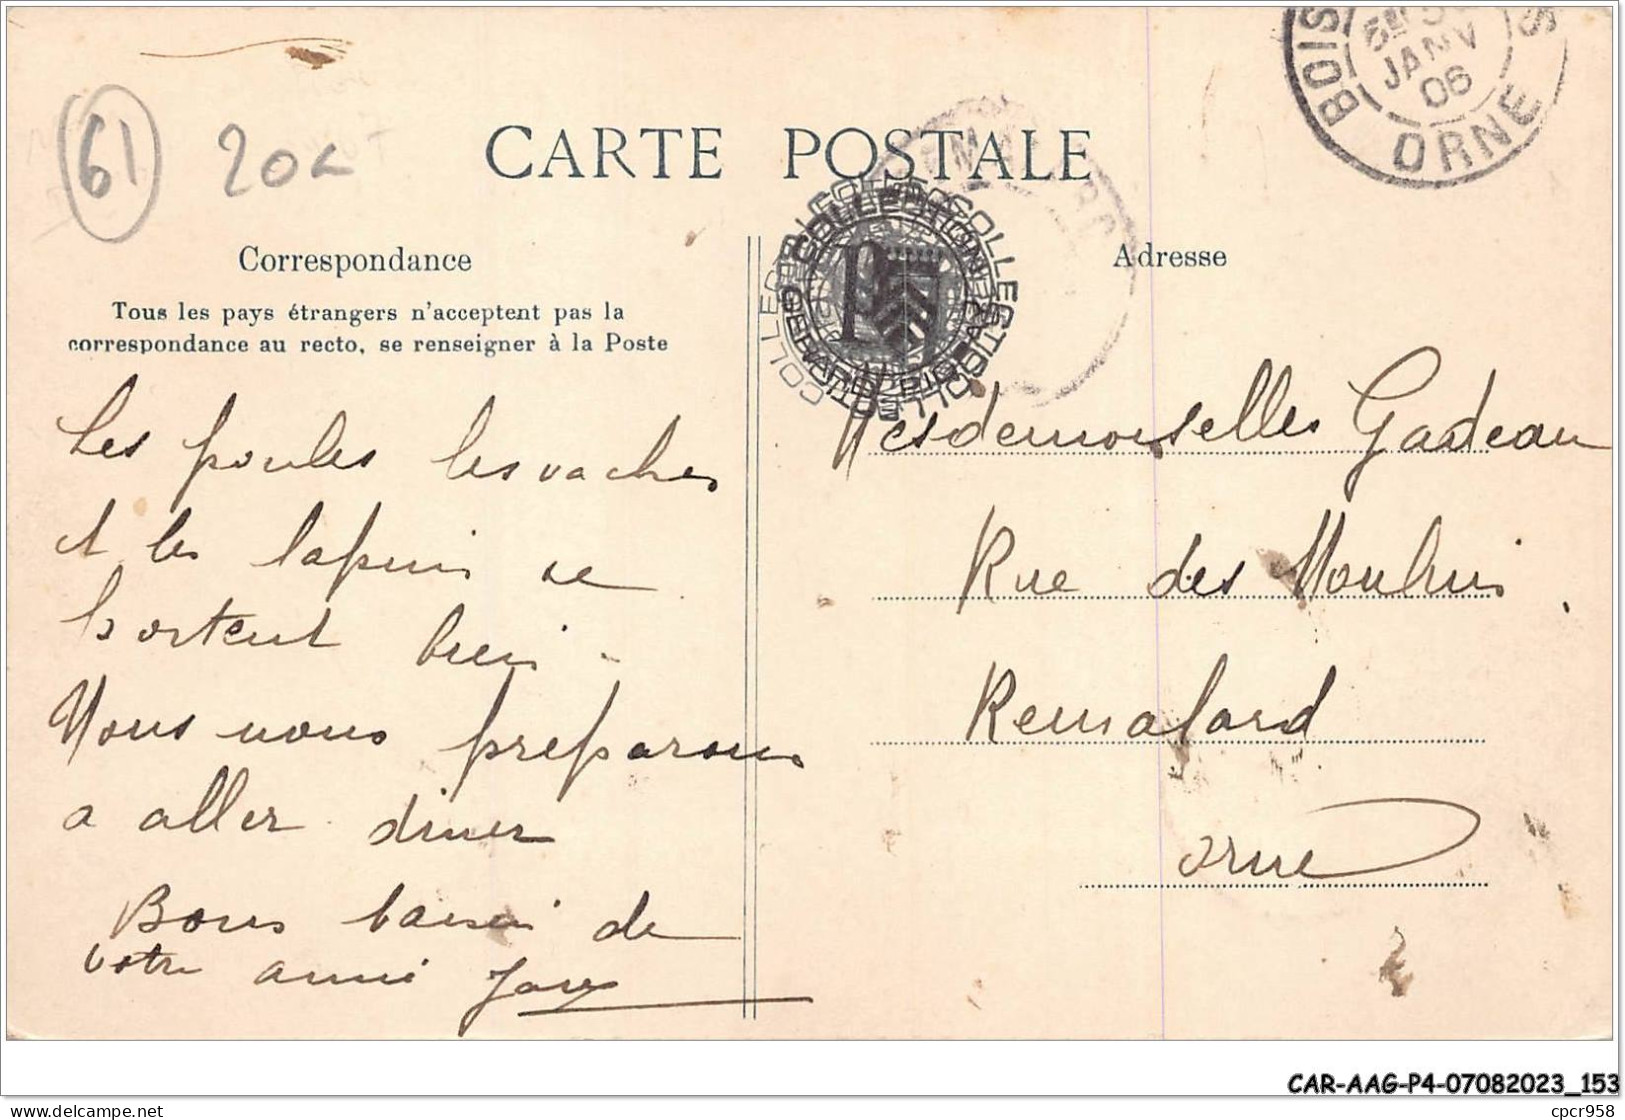 61
20
CARTE POSTALE
BOIS
JANV
06
ORNE
Correspondance
Tous les pays étrangers n'acceptent pas la
correspondance au recto, se renseigner à la Poste
Adresse
COLLECTIONNEUR
GERARD
Les poules les vaches
et les lapins se
portent bien -
Nous nous preparons
a aller diner
Bons baisers de
votre amie
Mesdemoiselles Gadeau
Rue des Moulins
Remalard
Orne
CAR-AAG-P4-07082023_153
delcampe.net
cpcr958